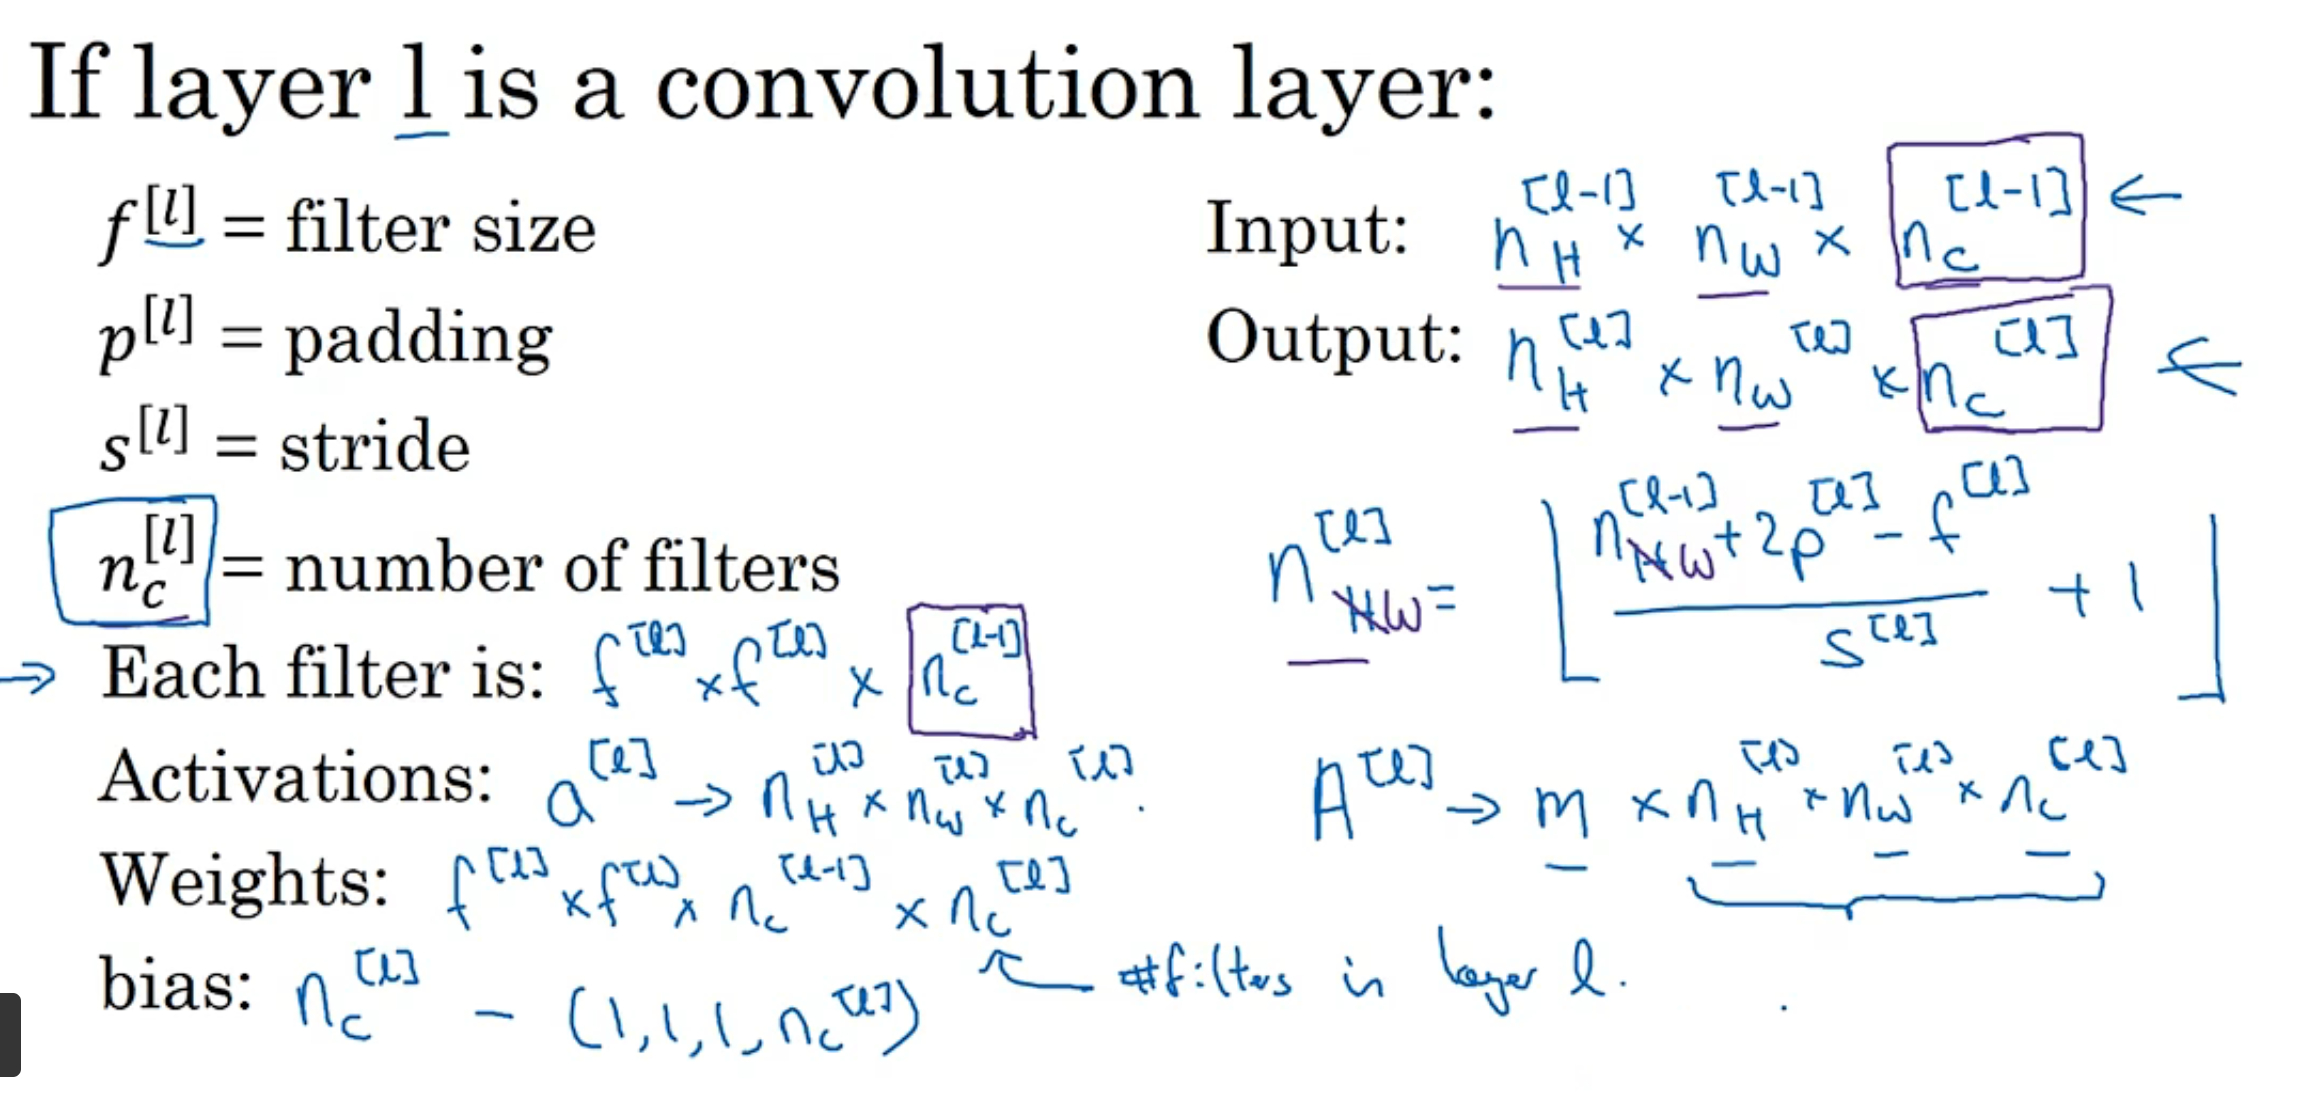 If layer l is a convolution layer:
f^[l] = filter size
p^[l] = padding
s^[l] = stride
n_c^[l] = number of filters
→ Each filter is: f^[l] × f^[l] × n_c^[l-1]
Activations: a^[l] → n_H^[l] × n_W^[l] × n_c^[l].
Weights: f^[l] × f^[l] × n_c^[l-1] × n_c^[l]
bias: n_c^[l] - (1,1,1,n_c^[l])
← #filters in layer l.
Input: n_H^[l-1] × n_W^[l-1] × n_c^[l-1] ←
Output: n_H^[l] × n_W^[l] × n_c^[l] ←
n_W^[l] = ⌊(n_W^[l-1] + 2p^[l] - f^[l]) / s^[l] + 1⌋
A^[l] → m × n_H^[l] × n_W^[l] × n_c^[l]